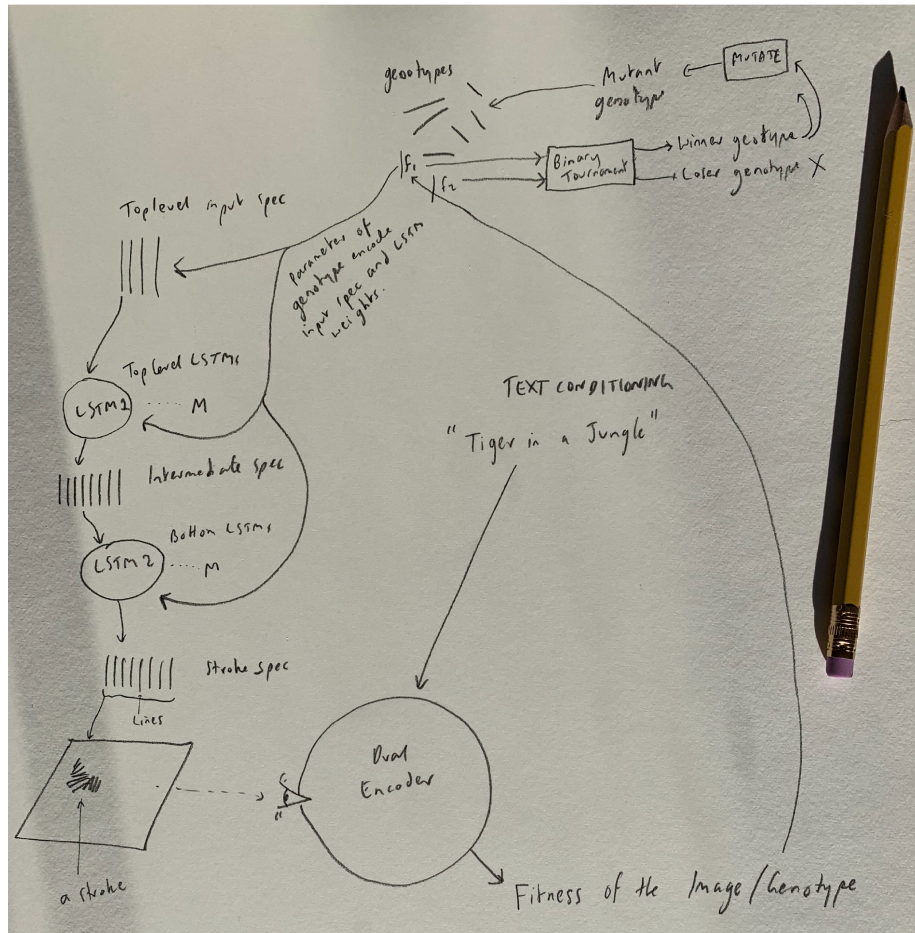 geotypes
Mutant
genotype
MUTATE
f1
f2
Binary
Tournament
Winner geotype
Loser genotype X
Toplevel input spec
parameter of
genotype encode
input spec and LSTM
weights.
Top level LSTMs
LSTM1 ...... M
Intermediate spec
Bottom LSTMs
LSTM2 ...... M
Stroke spec
Lines
a stroke
TEXT CONDITIONING
"Tiger in a Jungle"
Dual
Encoder
Fitness of the Image/Genotype